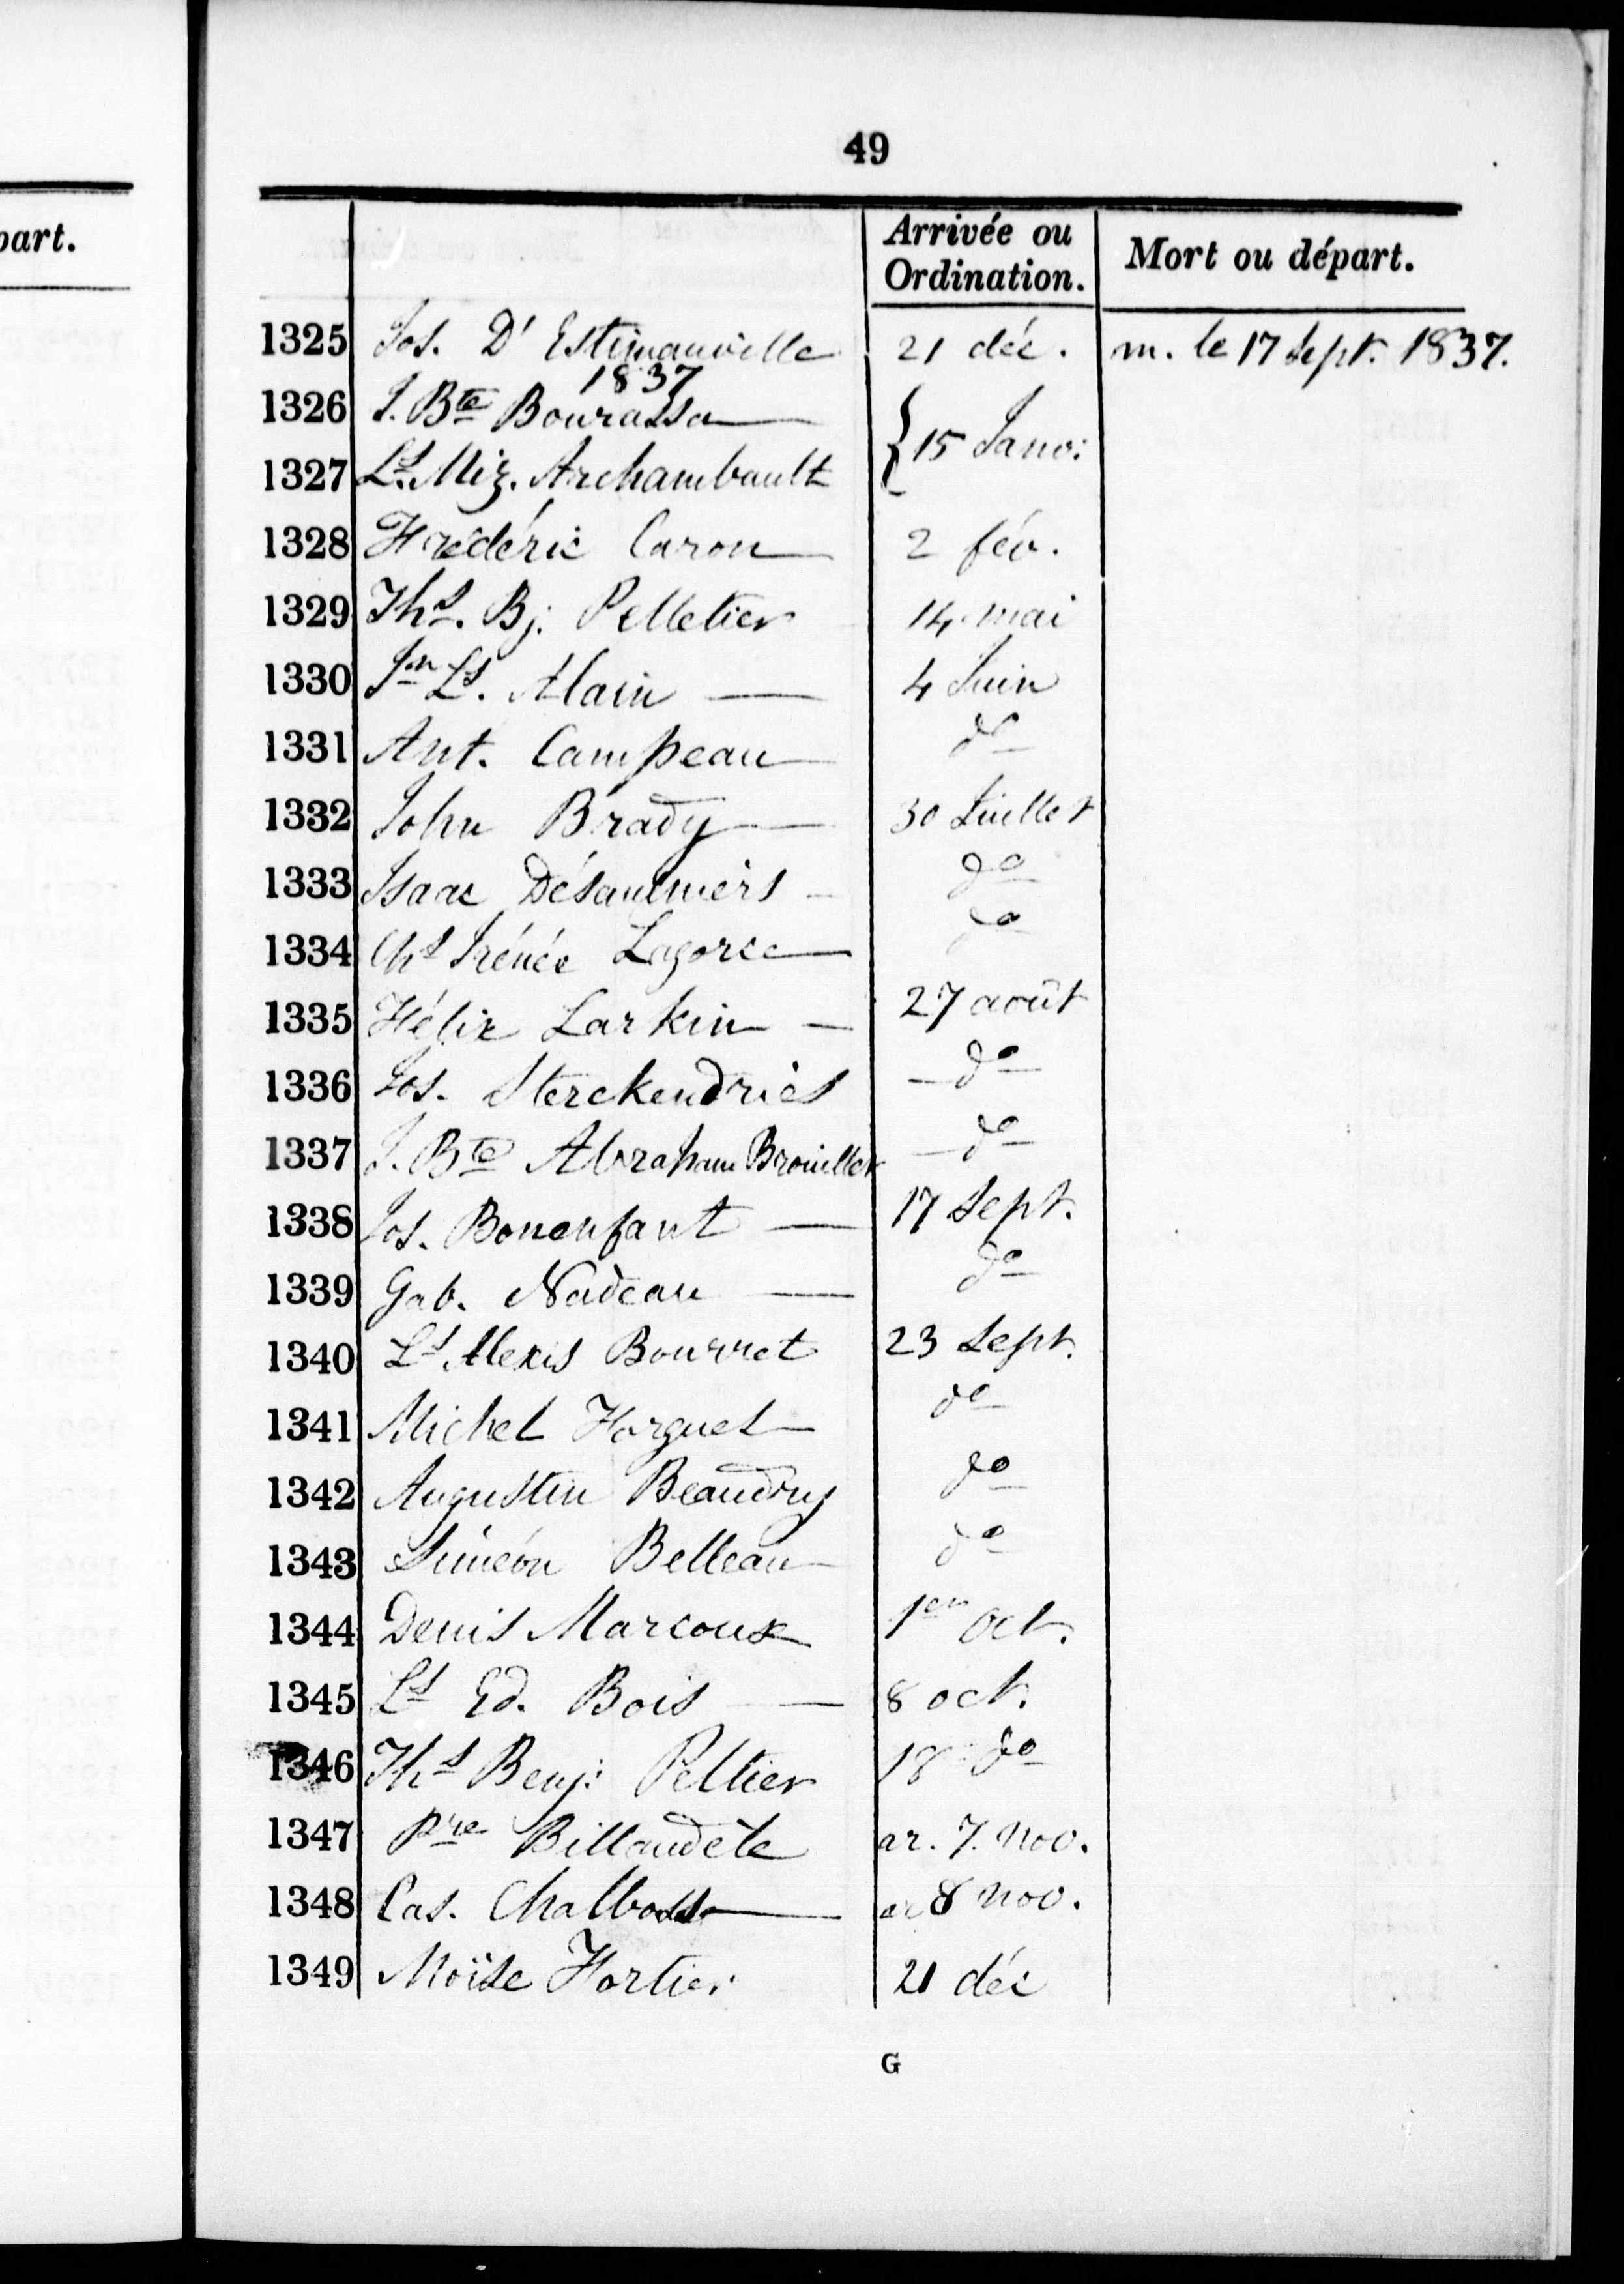 49
part.
Arrivée ou Ordination.
Mort ou départ.
1325 Jos. D'Estimauville 21 déc. m. le 17 Sept. 1837.
1837
1326 J. Bte Bourassa
1327 Ls. Miz. Archambault { 15 Janv:
1328 Frédéric Caron 2 fév.
1329 Ths. Bj. Pelletier 14 mai
1330 Jn Ls. Alain 4 Juin
1331 Ant. Campeau do
1332 John Brady 30 Juillet
1333 Isaac Désaulniers do
1334 Chs Irénée Lagorce do
1335 Félix Larkin 27 août
1336 Jos. Sterckendries do
1337 J. Bte Abraham Brouillet do
1338 Jos. Bonenfant 17 Sept.
1339 Gab. Nadeau do
1340 Ls Alexis Bourret 23 Sept.
1341 Michel Forguet do
1342 Augustin Beaudry do
1343 Siméon Belleau do
1344 Denis Marcoux 1er Oct.
1345 Ls Ed. Bois 8 oct.
1346 Ths Benj: Peltier 18 do
1347 Pre Billaudèle ar. 7. nov.
1348 Cas. ar 8 nov.
1349 Moïse Fortier 21 déc
G